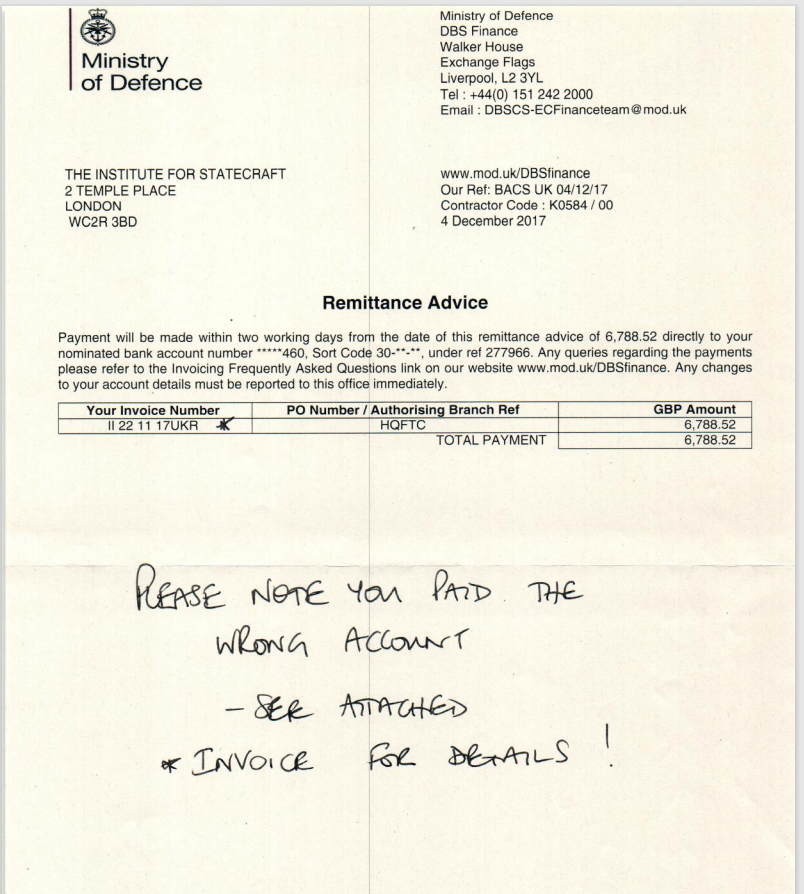 Ministry
of Defence
Ministry of Defence
DBS Finance
Walker House
Exchange Flags
Liverpool, L2 3YL
Tel : +44(0) 151 242 2000
Email : DBSCS-ECFinanceteam@mod.uk
THE INSTITUTE FOR STATECRAFT
2 TEMPLE PLACE
LONDON
WC2R 3BD
www.mod.uk/DBSfinance
Our Ref: BACS UK 04/12/17
Contractor Code : K0584 / 00
4 December 2017
Remittance Advice
Payment will be made within two working days from the date of this remittance advice of 6,788.52 directly to your
nominated bank account number *****460, Sort Code 30-**-**, under ref 277966. Any queries regarding the payments
please refer to the Invoicing Frequently Asked Questions link on our website www.mod.uk/DBSfinance. Any changes
to your account details must be reported to this office immediately.
Your Invoice Number PO Number / Authorising Branch Ref GBP Amount
II 22 11 17UKR * HQFTC 6,788.52
TOTAL PAYMENT 6,788.52
PLEASE NOTE YOU PAID THE
WRONG ACCOUNT
- SEE ATTACHED
* INVOICE FOR DETAILS !